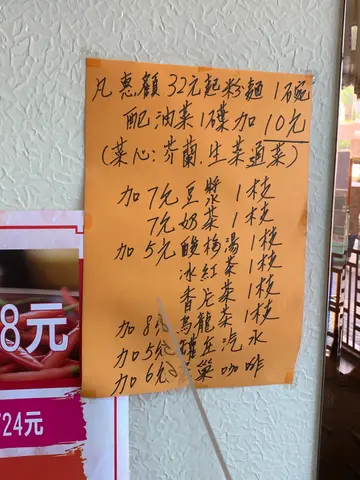 凡惠顧32元起粉麵1碗
配油菜1碟加10元
(菜心.芥蘭.生菜通菜)
加7元豆漿1枝
7元奶茶1枝
加5元酸梅湯1枝
冰紅茶1枝
香片茶1枝
加8元烏龍茶1枝
加5元罐庄汽水
加6元 巢咖啡
8元
24元